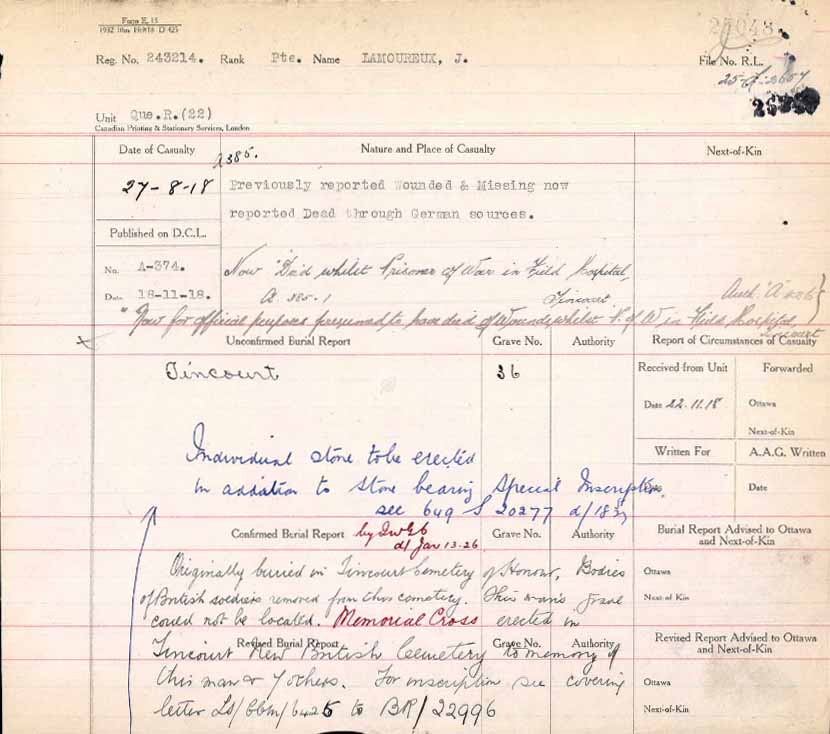 Form E. 15
Reg. No. 243214. Rank Pte. Name LAMOUREUX, J.
File No. R.L.
Unit Que.R.(22)
Canadian Printing & Stationery Services, London
Date of Casualty
Nature and Place of Casualty
Next-of-Kin
A385.
27-8-18
Previously reported Wounded & Missing now
reported Dead through German sources.
Published on D.C.L.
No. A-374.
Date 18-11-18.
Now "Died whilst Prisoner of War in Field Hospital,
Tincourt.
A. 385.1
Auth "A" 406
"Now for official purposes presumed to have died of Wounds whilst P. of W in Field Hospital,
Tincourt
Unconfirmed Burial Report
Grave No.
Authority
Report of Circumstances of Casualty
Tincourt
36
Received from Unit
Forwarded
Date 22.11.18
Ottawa
Next-of-Kin
Written For
A.A.G. Written
Date
Date
Individual stone to be erected
in addition to stone bearing Special Inscription.
see 649 S 20277
Confirmed Burial Report
by IWGC
d/ Jan 13-26
Grave No.
Authority
Burial Report Advised to Ottawa
and Next-of-Kin
Ottawa
Next-of-Kin
Originally buried in Tincourt Cemetery of Honour, Bodies
of British soldiers removed from this cemetery. This man's grave
could not be located. Memorial Cross erected in
Revised Burial Report
Grave No.
Authority
Revised Report Advised to Ottawa
and Next-of-Kin
Tincourt New British Cemetery to memory of
this man & 7 others. For inscription see covering
letter to BR/22996
Ottawa
Next-of-Kin